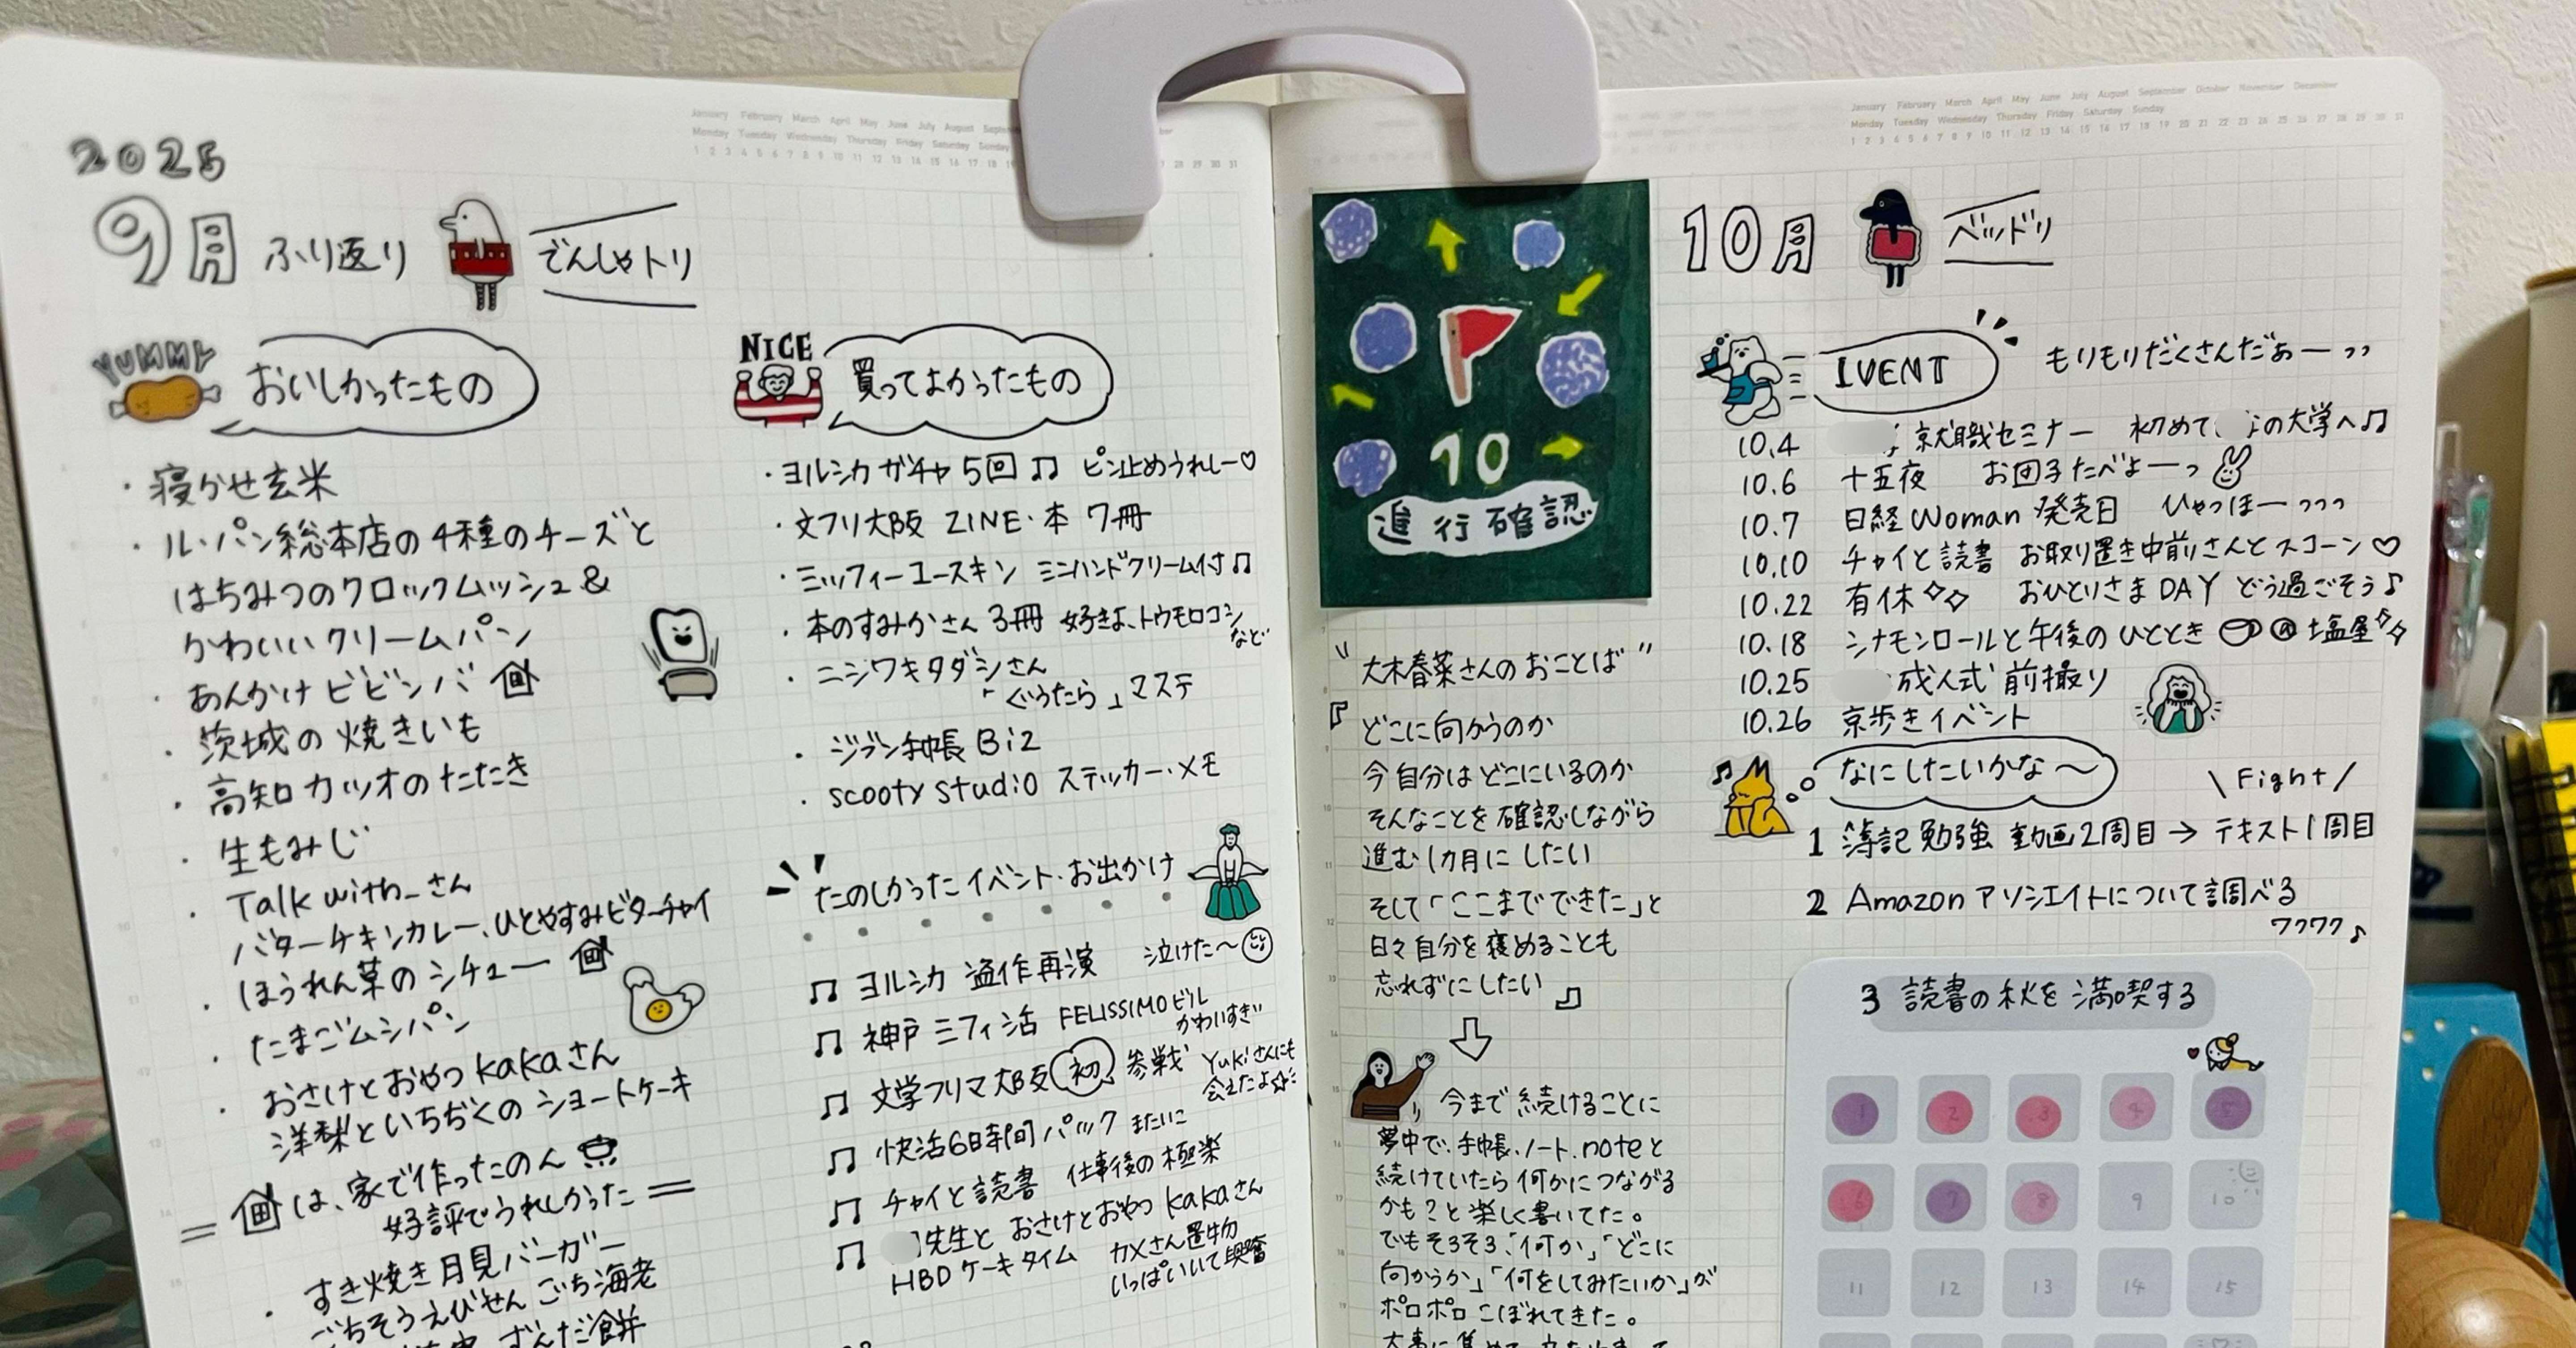 January February March April May June July August
Monday Tuesday Wednesday Thursday Friday Saturday Sunday
1 2 3 4 5 6 7 8 9 10 11 12 13 14 15 16 17 18
28 29 30 31
2025
9月 ふり返り でんしゃトリ
YUMMY
おいしかったもの
・寝かせ玄米
・ル・パン総本店の4種のチーズと
はちみつのクロックムッシュ&
かわいいクリームパン
・あんかけビビンバ
・茨城の焼きいも
・高知カツオのたたき
・生もみじ
・Talk with_さん
バターチキンカレー、ひとやすみビターチャイ
・ほうれん草のシチュー
・たまごムシパン
・おさけとおやつkakaさん
洋梨といちぢくのショートケーキ
= は、家で作ったのん
好評でうれしかった =
・すき焼き月見バーガー
ごちそうえびせん ごち海老
ずんだ餅
NICE
買ってよかったもの
・ヨルシカガチャ5回♫ ピン止めうれしー♡
・文フリ大阪 ZINE・本 7冊
・ミッフィーユースキン ミニハンドクリーム付♫
・本のすみかさん 3冊 好きよ、トウモロコシ
など
・ニシワキタダシさん
「ぐうたら」マステ
・ジブン手帳Biz
・scooty studio ステッカー・メモ
たのしかったイベント・お出かけ
♫ ヨルシカ 盗作再演 泣けた〜
♫ 神戸 ミフィ活 FELISSIMOビル
かわいすぎ
♫ 文学フリマ大阪 初 参戦 Yukiさんにも
会えたよ☆
♫ 快活6時間パック またいこ
♫ チャイと読書 仕事後の極楽
♫ 先生と おさけとおやつ kakaさん
HBDケーキタイム カメさん置物
いっぱいいて興奮
January February March April May June July August September October November December
Monday Tuesday Wednesday Thursday Friday Saturday Sunday
1 2 3 4 5 6 7 8 9 10 11 12 13 14 15 16 17 18 19 20 21 22 23 24 25 26 27 28 29 30 31
10
進行確認
"大木春菜さんのおことば"
『どこに向かうのか
今自分はどこにいるのか
そんなことを確認しながら
進む1カ月にしたい
そして「ここまでできた」と
日々自分を褒めることも
忘れずにしたい』
今まで続けることに
夢中で、手帳、ノート、noteと
続けていたら何かにつながる
かも?と楽しく書いてた。
でもそろそろ、「何か」「どこに
向かうか」「何をしてみたいか」が
ポロポロこぼれてきた。
10月 ベッドリ
IVENT もりもりだくさんだぁーっっ
10.4 就職セミナー 初めて の大学へ♫
10.6 十五夜 お団子たべよーっ
10.7 日経Woman発売日 ひゃっほーっっっ
10.10 チャイと読書 お取り置き中前りさんとスコーン♡
10.22 有休 おひとりさまDAY どう過ごそう♪
10.18 シナモンロールと午後のひととき @塩屋
10.25 成人式 前撮り
10.26 京歩きイベント
なにしたいかな〜
\ Fight /
1 簿記勉強 動画2周目→テキスト1周目
2 Amazonアソシエイトについて調べる
ワクワク♪
3 読書の秋を満喫する
1 2 3 4 5
6 7 8 9 10
11 12 13 14 15